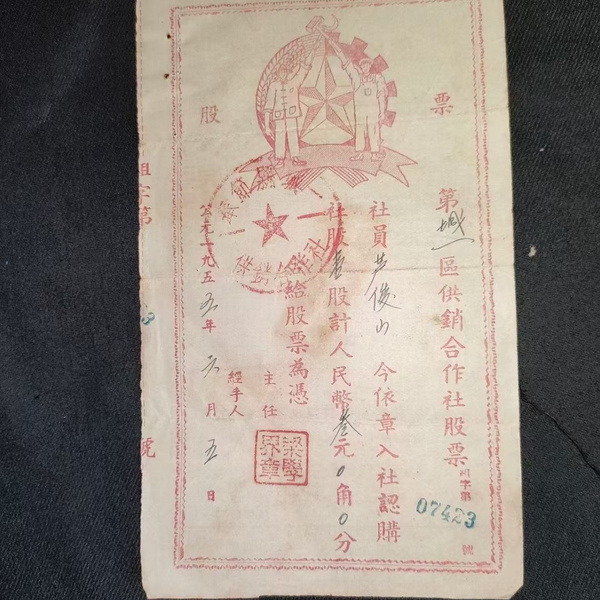 股票
第城一區供銷合作社股票
州字第07423號
社員芦俊山今依章入社認購
社股壹股計人民幣叁元0角0分
合給股票為憑
主任
梁學界章
經手人
公元一九五五年六月五日
組字第
號